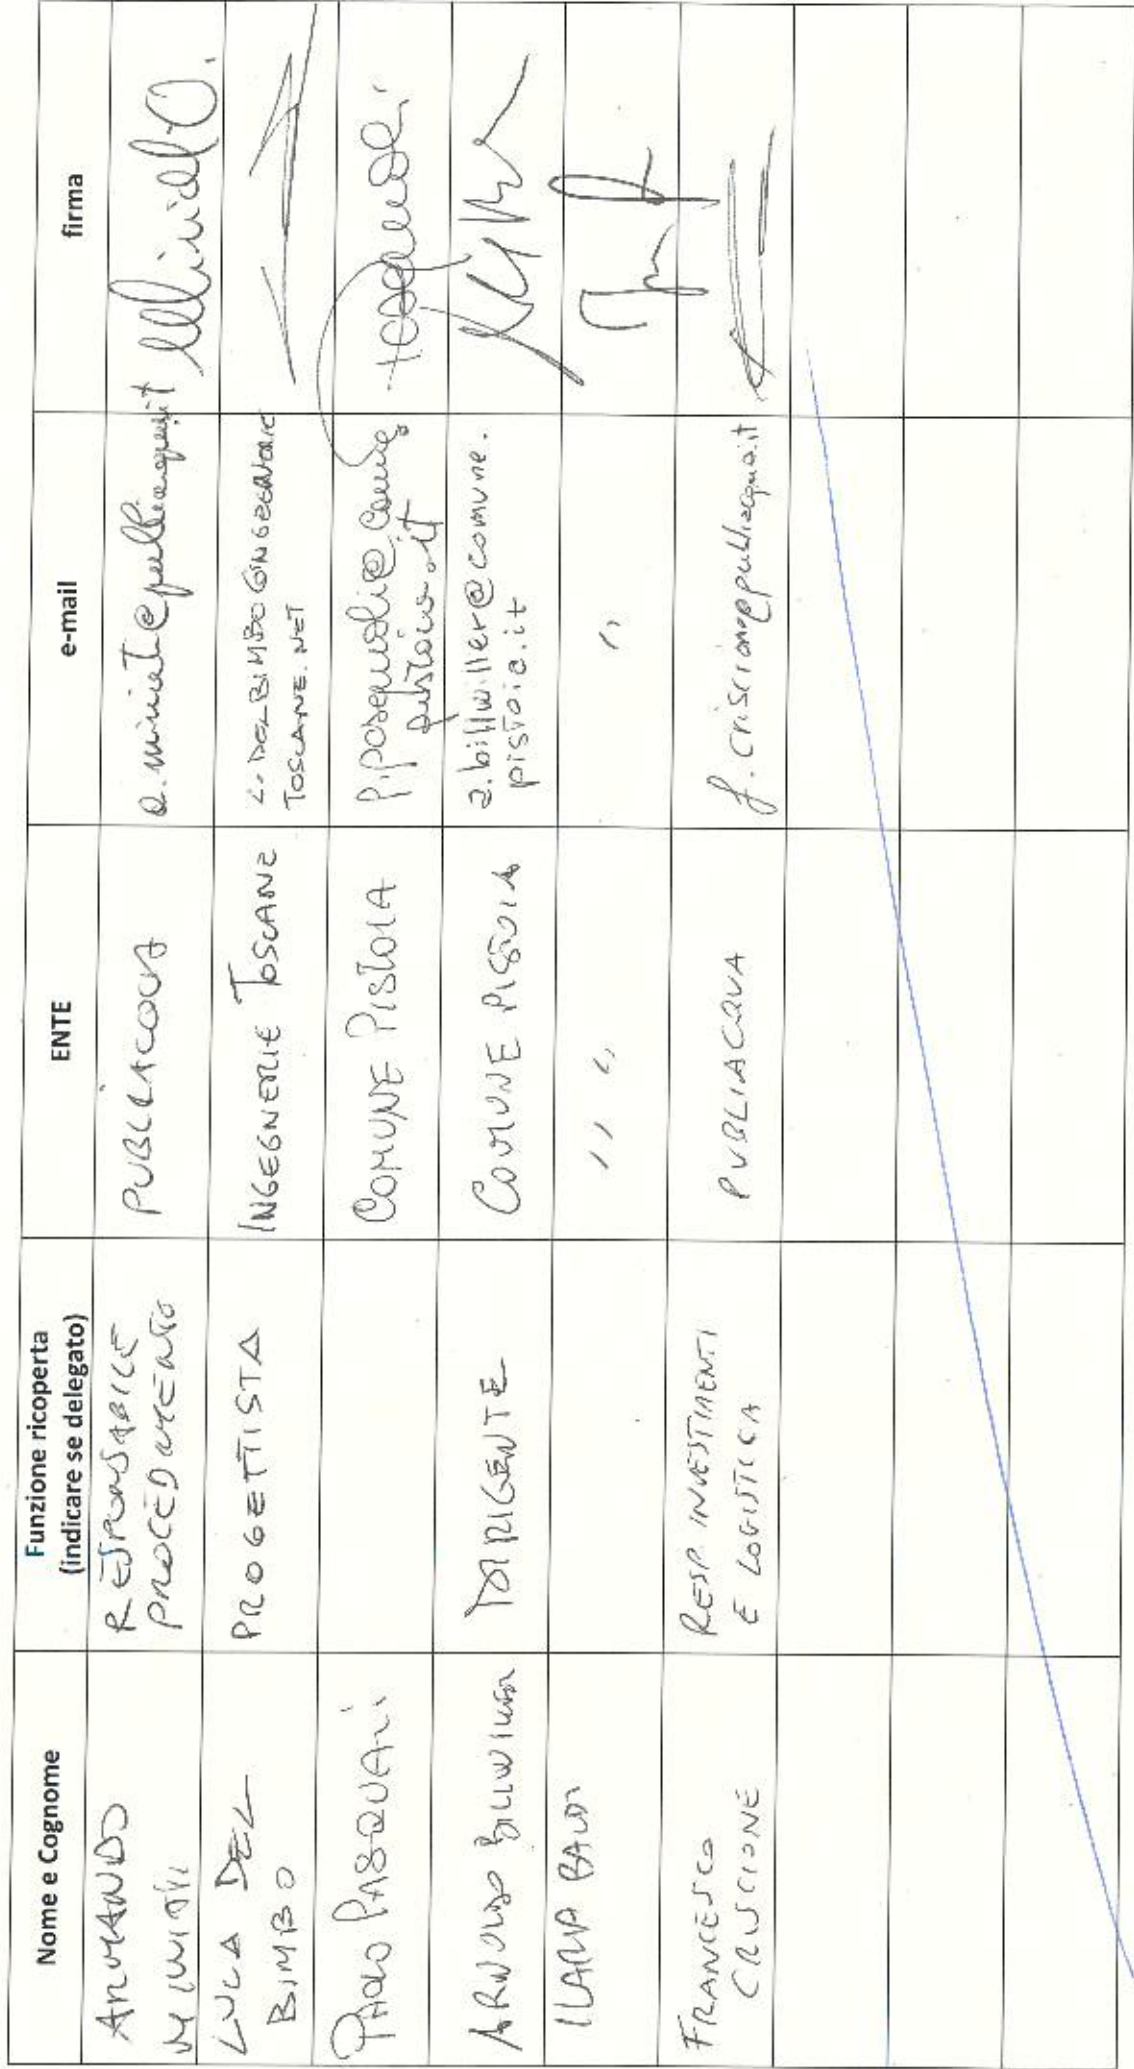 Nome e Cognome
Funzione ricoperta
(indicare se delegato)
ENTE
e-mail
firma
ARMANDO
MINIATI
RESPONSABILE
PROCEDIMENTO
PUBLIACQUA
a.miniati@publiacqua.it
LUCA DEL
BIMBO
PROGETTISTA
INGEGNERIE TOSCANE
L.DELBIMBO@INGEGNERIE
TOSCANE.NET
PAOLO PASQUALI
COMUNE PISTOIA
p.pasquali@comune.
pistoia.it
ARNOLDO BILLWILLER
DIRIGENTE
COMUNE PISTOIA
a.billwiller@comune.
pistoia.it
ILARIA BALDI
" "
"
FRANCESCO
CRISCIONE
RESP. INVESTIMENTI
E LOGISTICA
PUBLIACQUA
f.criscione@publiacqua.it